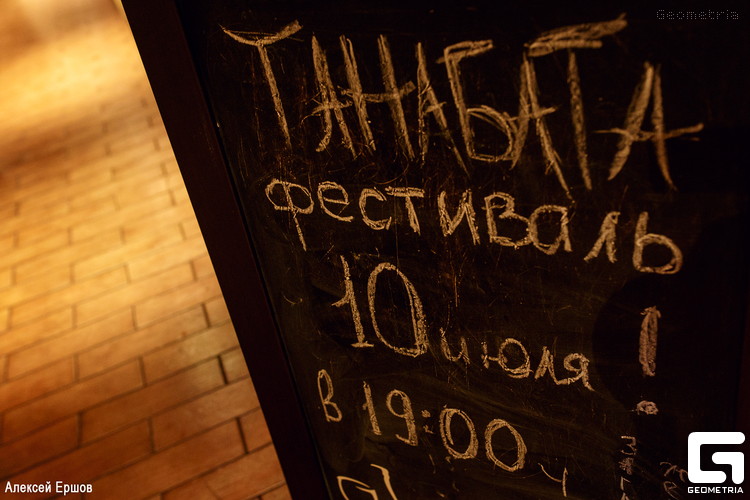 Geometria
ТАНАБАТА
фестиваль
10 июля !
в 19:00 ч
Алексей Ершов
GEOMETRIA